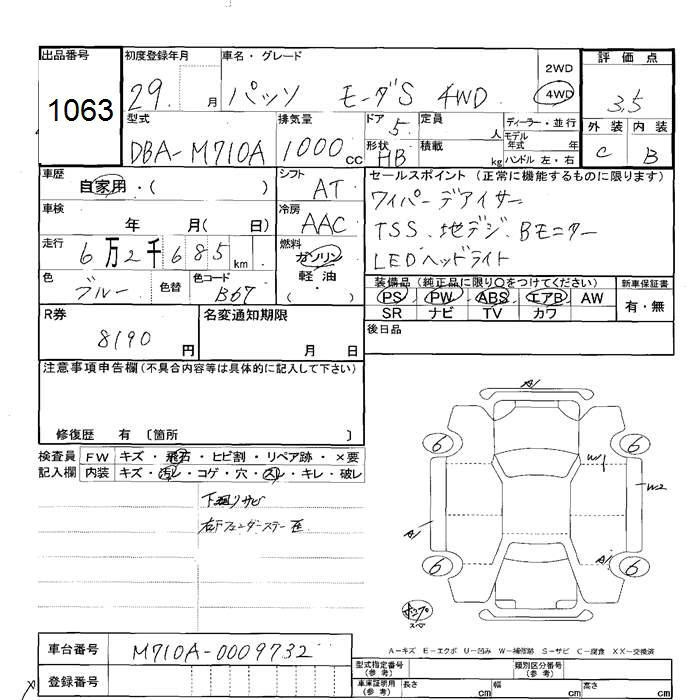 出品番号
1063
初度登録年月
29. 月
車名・グレード
パッソ モーダS 4WD
2WD
4WD
評価点
3.5
外装 内装
C B
型式
DBA-M710A
排気量
1000cc
ドア 5
形状 HB
定員 人
積載 kg
ディーラー・並行
モデル年式 年
ハンドル 左・右
車歴
自家用・( )
シフト
AT
車検
年 月( 日)
冷房
AAC
走行
6万2千685km
燃料
ガソリン
軽油
( ・ )
色
ブルー
色替
色コード
B67
セールスポイント(正常に機能するものに限ります)
ワイパーデアイサー
TSS、地デジ、Bモニター
LEDヘッドライト
装備品(純正品に限り○をつけてください)
PS PW ABS エアB AW
SR ナビ TV カワ
新車保証書
有・無
後日品
R券
8190円
名変通知期限
月 日
注意事項申告欄(不具合内容等は具体的に記入して下さい)
修復歴 有 〔箇所 〕
検査員 FW キズ・飛石・ヒビ割・リペア跡・×要
記入欄 内装 キズ・汚レ・コゲ・穴・スレ・キレ・破レ
下廻りサビ
右Fフェンダーステー歪
A1
6
6
W1
W2
A1
A1
6
6
スペア
A-キズ E-エクボ U-凹み W-補修跡 S-サビ C-腐食 XX-交換済
車台番号
M710A-0009732
登録番号
型式指定番号(参考)
類別区分番号(参考)
車庫証明用(参考) 長さ cm 幅 cm 高さ cm